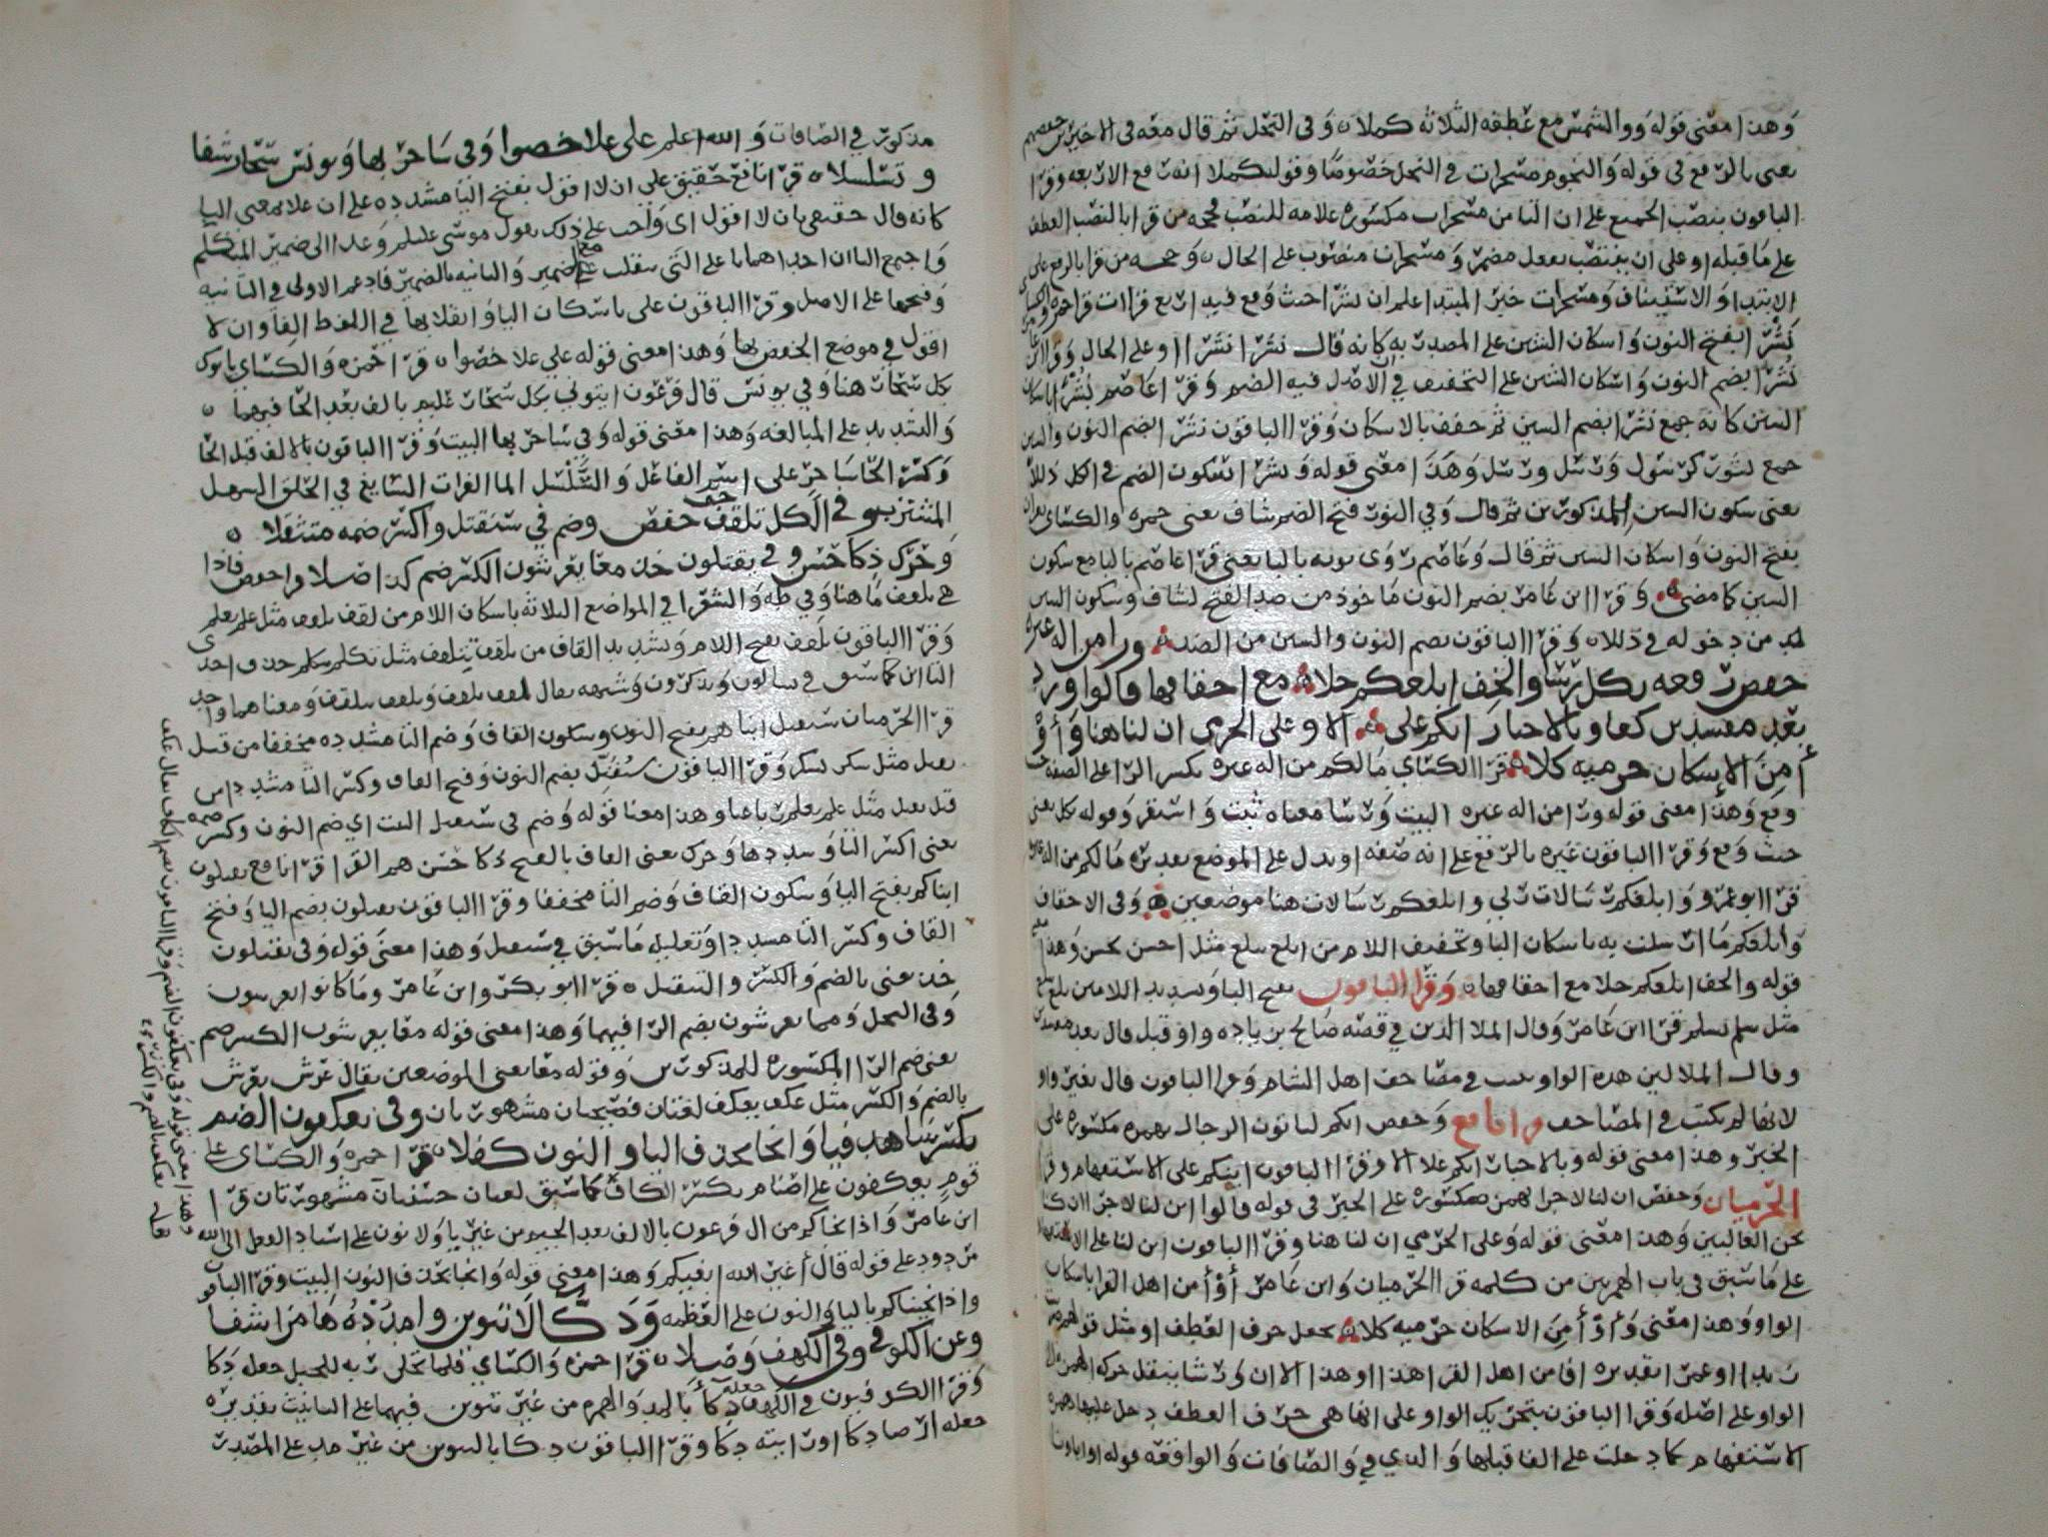 وهذا معنى قوله ووالشمس مع عطفه الثلاثة كملا ٥ وفي النحل ثم قال معه في الاخيرين حفصهم
يعني بالرفع في قوله والنجوم مسخرات في النحل خصوصا وقوله كملا انه رفع الاربعه وقرا
الباقون بنصب الجميع على ان التا من مسخرات مكسوره علامه للنصب فحجه من قرا بالنصب العطف
على ما قبله او على ان ينتصب بفعل مضمر ومسخرات منصوب على الحال ٥ وحجه من قرا بالرفع على
الابتدا والاستيناف ومسخرات خبر المبتدا اعلم ان نشرا حيث وقع فيه اربع قراات قرا حمزه والكسائي
نشرا بفتح النون واسكان الشين على المصدر به كانه قال نشر انشرا او على الحال وقرا ابن عامر
نشرا بضم النون واسكان الشين على التخفيف لان الاصل فيه الضم وقرا عاصم بشرا باسكان
الشين كانه جمع نشرا بضم السين ثم خفف بالاسكان وقرا الباقون نشرا بضم النون والشين
جمع نشور كرسول ورسل ورسل وهذا معنى قوله ونشرا سكون الضم في الكل ذللا
يعني سكون السين للمذكورين ثم قال وفي النون فتح الضم شاف يعني حمزه والكسائي يقران
بفتح النون واسكان السين ثم قال وعاصم روى نونه بالبا يعني قرا عاصم بالبا مع سكون
السين كما مضى ٥ وقرا ابن عامر بضم النون ماخوذ من ضد الفتح لشاف وسكون السين
لابد من دخوله في ذللا ٥ وقرا الباقون بضم النون والسين من الضد ٥ ورا من اله غيره
خفض رفعه بكل رسا والخف ابلغكم حلا ٥ مع احقافها والواو زد
بعد مفسدين كفا وبالاخبار انكم علا ٥ الا وعلى الحرمي ان لنا هنا واو
أمن الإسكان حرميه كلا ٥ قرا الكسائي مالكم من اله غيره بكسر الرا على الصفه حيث
وقع وهذا معنى قوله ورا من اله غيره البيت ورسا معناه ثبت واستقر وقوله بكل يعني
حيث وقع وقرا الباقون غيره بالرفع على انه صفه او بدل على الموضع تقديره مالكم من اله غيره
قرا ابو عمرو وابلغكم رسالات ربي وابلغكم رسالات هنا موضعين ٥ وفي الاحقاف
وابلغكم ما ارسلت به باسكان البا وتخفيف اللام من ابلغ يبلغ مثل احسن يحسن وهذا معنى
قوله والخف ابلغكم حلا مع احقافها ٥ وقرا الباقون بفتح البا وتشديد اللام من بلغ يبلغ
مثل سلم يسلم قرا ابن عامر وقال الملا الذين في قصه صالح بزياده واو قبل قال بعد مفسدين
وقال الملا لان هذه الواو تكتب في مصاحف اهل الشام وقرا الباقون قال بغير واو
لانها لم تكتب في المصاحف قرا نافع وحفص انكم لتاتون الرجال بهمزه مكسوره على
الخبر وهذا معنى قوله وبالاخبار انكم علا الا وقرا الباقون اينكم على الاستفهام وقرا
الحرميان وحفص ان لنا لاجرا بهمزه مكسوره على الخبر في قوله قالوا ان لنا لاجرا ان كنا
نحن الغالبين وهذا معنى قوله وعلى الحرمي ان لنا هنا وقرا الباقون اين لنا على الاستفهام
على ما سبق في باب الهمزتين من كلمه قرا الحرميان وابن عامر أوْأمن اهل القرا باسكان
الواو وهذا معنى وأوْ أمن الاسكان حرميه كلا ٥ بجعل حرف العطف او مثل قولهم ضربت
زيدا او عمرا تقديره افامن اهل القرا هذا او هذا الا ان ورشا ينقل حركه الهمزه الى
الواو على اصله وقرا الباقون بتحريك الواو على انها هي حرف العطف دخل عليها همزه
الاستفهام كما دخلت على الفا قبلها والذي في والصافات والواقعه قوله او اباونا
مذكور في الصافات والله اعلم على علا خصوا وفي ساحر بها ويونس سحار شفا
وتسلسلا ٥ قرا نافع حقيق علي ان لا اقول بفتح اليا مشدده على ان علا بمعنى البا
كانه قال حقيق بان لا اقول اي واجب علي ذلك بقول موسى عليلم وعدا الى ضمير المتكلم
واجتمع اليا ان احداهما يا على التي تنقلب مع الضمير والثانيه يا الضمير فادغم الاولى في الثانيه
وفتحها على الاصل وقرا الباقون على باسكان اليا وانقلابها في اللفظ الفا وان لا
اقول في موضع الخفض بها وهذا معنى قوله علي علا خصوا ٥ قرا حمزه والكسائي ياتوك
بكل سحار هنا وفي يونس قال فرعون ايتوني بكل سحار عليم بالف بعد الحا فيهما ٥
والتشديد على المبالغه وهذا معنى قوله وفي ساحر بها البيت وقرا الباقون بالالف قبل الحا
وكسر الحا ساحر على اسم الفاعل والتسلسل الما الفرات السايغ في الحلق السهل
المشتربو في الكل تلقف خف حفص وضم في سنقتل واكسر ضمه متثقلا ٥
وحرك ذكا حسن وفي يقتلون خذ معا يعرشون الكسر ضم كذا صلا وا حفص فاذا
هي تلقف ما هنا وفي طه والشعرا في المواضع الثلاثه باسكان اللام من لقف يلقف مثل علم يعلم
وقرا الباقون تلقف بفتح اللام وتشديد القاف من تلقف يتلقف مثل تكلم يتكلم حذف احدى
التا ان كما سبق في تسالون وتذكرون وشبهه يقال لقف يلقف وتلقف يتلقف ومعناهما واحد
قرا الحرميان سنقتل ابناهم بفتح النون وسكون القاف وضم التا مشدده مخففا من قتل
يقتل مثل شكر يشكر وقرا الباقون سنقتل بضم النون وفتح القاف وكسر التا مشددا من
قتل يقتل مثل علم يعلم رباعيا وهذا معنا قوله وضم في سنقتل البيت اي ضم النون وكسر ضمه
يعني اكسر التا وشددها وحرك يعني القاف بالفتح ذكا حسن هم القرا قرا نافع يقتلون
ابناكم بفتح اليا وسكون القاف وضم التا مخففا وقرا الباقون يقتلون بضم اليا وفتح
القاف وكسر التا مشددا وتعليله ما سبق في سنقتل وهذا معنى قوله وفي يقتلون
خذ يعني بالضم والكسر والتثقيل ٥ قرا ابو بكر وابن عامر وما كانوا يعرشون
وفي النحل ومما يعرشون بضم الرا فيهما وهذا معنى قوله معا يعرشون الكسر ضم
يعني ضم الرا المكسوره للمذكورين وقوله معا يعني الموضعين يقال عرش يعرش
بالضم والكسر مثل عكف يعكف لغتان فصيحتان مشهورتان وفي يعكفون الضم
يكسر شافيا وانجا بحذف اليا والنون كفلا ٥ قرا حمزه والكسائي على
قوم يعكفون على اصنام بكسر الكاف كما سبق لغتان حسنتان مشهورتان قرا
ابن عامر واذ انجاكم من ال فرعون بالالف بعد الجيم من غير يا ولا نون على اسناد الفعل الى الله
مردود على قوله قال أغير الله ابغيكم وهذا معنى قوله وانجا بحذف النون البيت وقرا الباقون
واذ انجيناكم باليا والنون على العظمه ودكا لا تنوين وامدده هامزا شفا
وعن الكوفي وفي الكهف وصلا ٥ قرا حمزه والكسائي فلما تجلى ربه للجبل جعله دكا
وقرا الكوفيون في الكهف جعله دكأ بالمد والهمزه من غير تنوين فيهما على التانيث تقديره
جعله ارضا دكا او رابيه دكا وقرا الباقون دكا بالتنوين من غير مد على المصدر
وهذا معنى قوله وفي يعكفون الضم وقرا الباقون بضم الكاف يقال عكف
يعكف بالضم والكسر